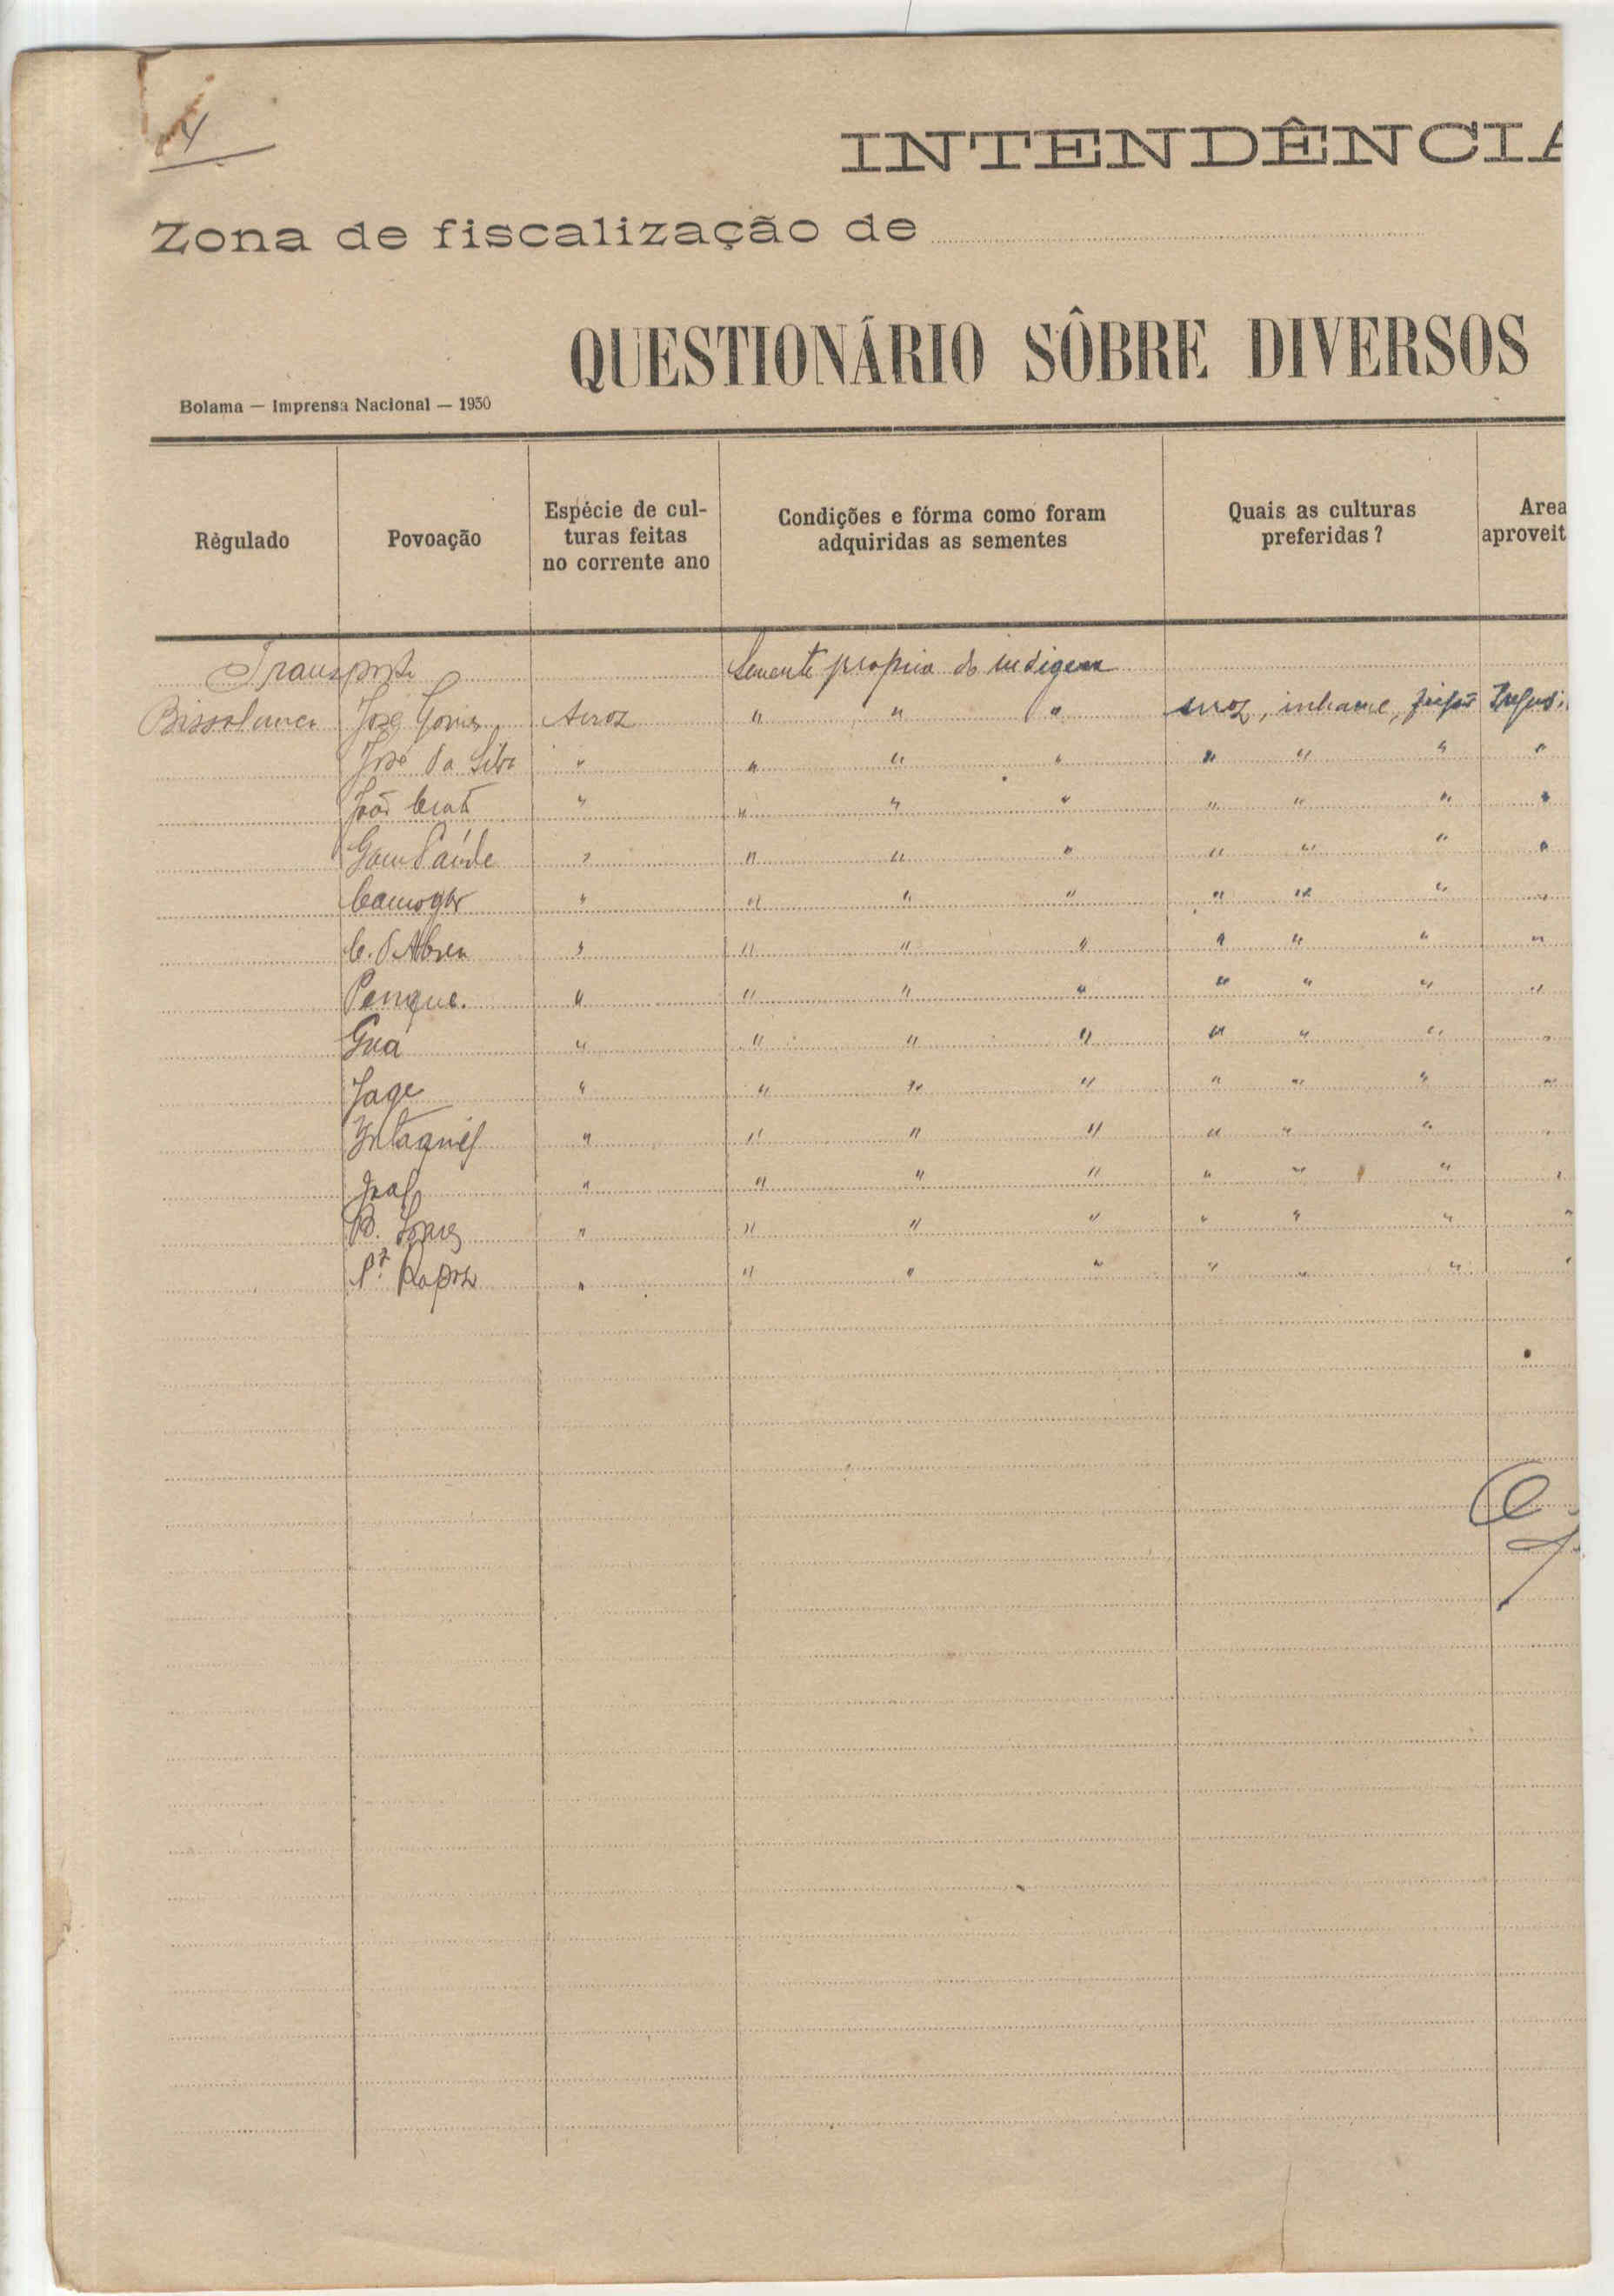 4
INTENDÊNCIA
Zona de fiscalização de
QUESTIONÁRIO SÔBRE DIVERSOS
Bolama — Imprensa Nacional — 1930
Règulado Povoação Espécie de cul-turas feitas no corrente ano Condições e fórma como foram adquiridas as sementes Quais as culturas preferidas? Area aproveit
Transporte Semente propria do indigena
Bissalanca José Gomes Arroz " " " arroz, inhame, feijão
José da Silva " " " " " " " "
João " " " " " " " "
Gam Saúde " " " " " " " "
" " " " " " " "
C. d'Abreu " " " " " " " "
Penque. " " " " " " " "
Guá " " " " " " " "
Jage " " " " " " " "
" " " " " " " "
" " " " " " " "
B. Lopes " " " " " " " "
" " " " " " " "